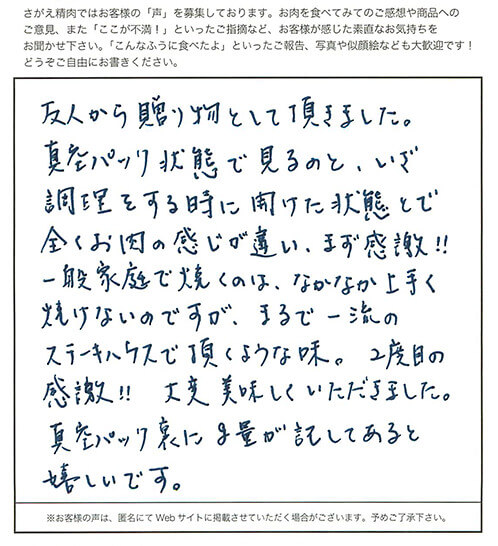 さがえ精肉ではお客様の「声」を募集しております。お肉を食べてみてのご感想や商品への
ご意見、また「ここが不満！」といったご指摘など、お客様が感じた素直なお気持ちを
お聞かせ下さい。「こんなふうに食べたよ」といったご報告、写真や似顔絵なども大歓迎です！
どうぞご自由にお書きください。
友人から贈り物として頂きました。
真空パック状態で見るのと、いざ
調理をする時に開けた状態とで
全くお肉の感じが違い、まず感激!!
一般家庭で焼くのは、なかなか上手く
焼けないのですが、まるで一流の
ステーキハウスで頂くような味。2度目の
感激!! 大変美味しくいただきました。
真空パック裏にg量が記してあると
嬉しいです。
※お客様の声は、匿名にてWebサイトに掲載させていただく場合がございます。予めご了承下さい。